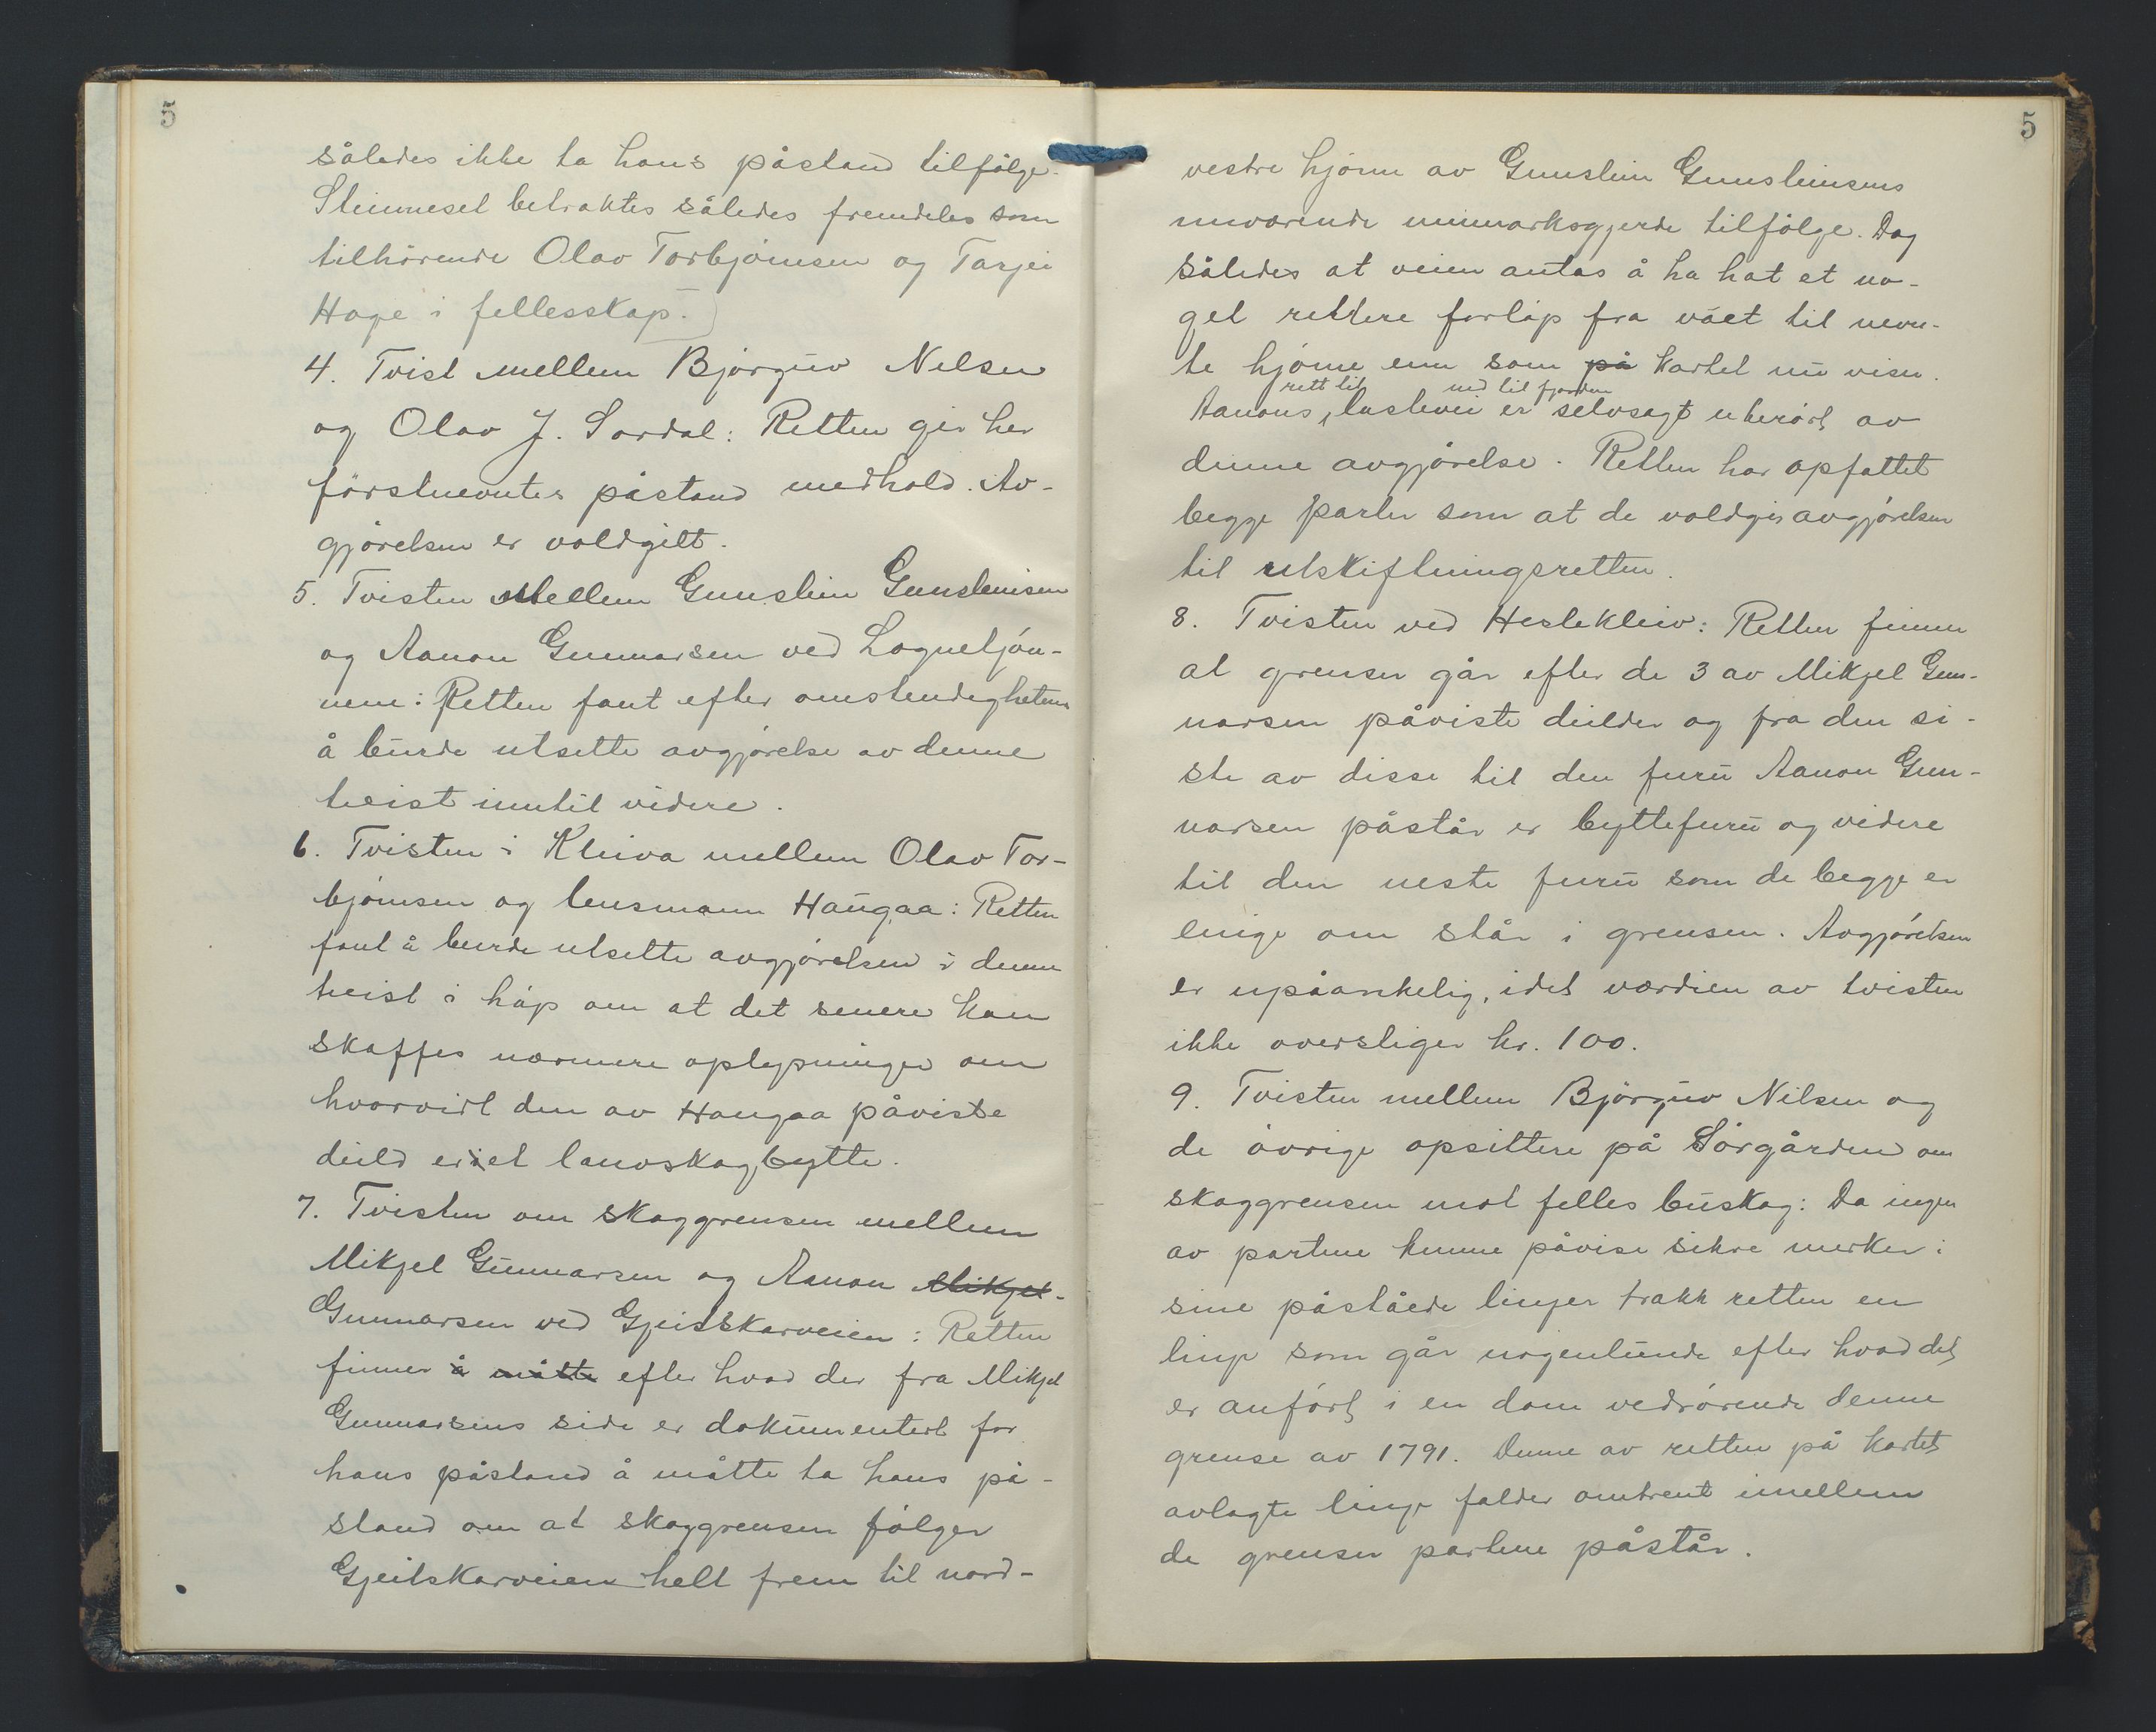 5
således ikke ta hans påstand tilfølge.
Steinneset betraktes således fremdeles som
tilhørende Olav Torbjørnsen og Tarjei
Hage i fellesskap.
4. Tvist mellem Bjørguv Nelsen
og Olav J. Sordal: Retten gir her
førstnevntes påstand medhold. Av-
gjørelsen er voldgitt.
5. Tvisten mellem Gunstein Gunsteinsen
og Aanon Gunnarsen ved Lognetjøn-
nene: Retten fant efter omstendigheten
å burde utsette avgjørelse av denne
tvist inntil videre.
6. Tvisten i Kleiva mellem Olav Tor-
bjørnsen og lensmann Haugaa: Retten
fant å burde utsette avgjørelsen i denne
tvist i håp om at det senere kan
skaffes nærmere oplysninger om
hvorvidt den av Haugaa påviste
deild er i et lauvskogbytte.
7. Tvisten om skoggrensen mellem
Mikjel Gunnarsen og Aanon Mikjel-
Gunnarsen ved Gjeitskarveien: Retten
finner å måtte efter hvad der fra Mikjel
Gunnarsens side er dokumentert for
hans påstand å måtte ta hans på-
stand om at skoggrensen følger
Gjeitskarveien helt frem til nord-
5
vestre hjørne av Gunstein Gunsteinsens
nuværende innmarksgjerde tilfølge. Dog
således at veien antas å ha hat et no-
get rettere forløp fra vået til nevn-
te hjørne enn som på kartet nu viser.
rett til ned til fjorden
Aanons lastevei er selvsagt uberørt av
denne avgjørelse. Retten har opfattet
begge parter som at de voldgir avgjørelsen
til utskiftningsretten.
8. Tvisten ved Heslekleiv: Retten finner
at grensen går efter de 3 av Mikjel Gun-
narsen påviste deilder og fra den si-
ste av disse til den furu Aanon Gun-
narsen påstår er byttefuru og videre
til den neste furu som de begge er
enige om står i grensen. Avgjørelsen
er upåankelig, idet værdien av tvisten
ikke overstiger kr. 100.
9. Tvisten mellem Bjørguv Nilsen og
de øvrige opsittere på Sørgården om
skoggrensen mot felles buskog: Da ingen
av partene kunne påvise sikre merker i
sine påståede linjer trakk retten en
linje som går nogenlunde efter hvad det
er anført i en dom vedrørende denne
grense av 1791. Denne av retten på kartet
avlagte linje falder omtrent imellem
de grenser partene påstår.